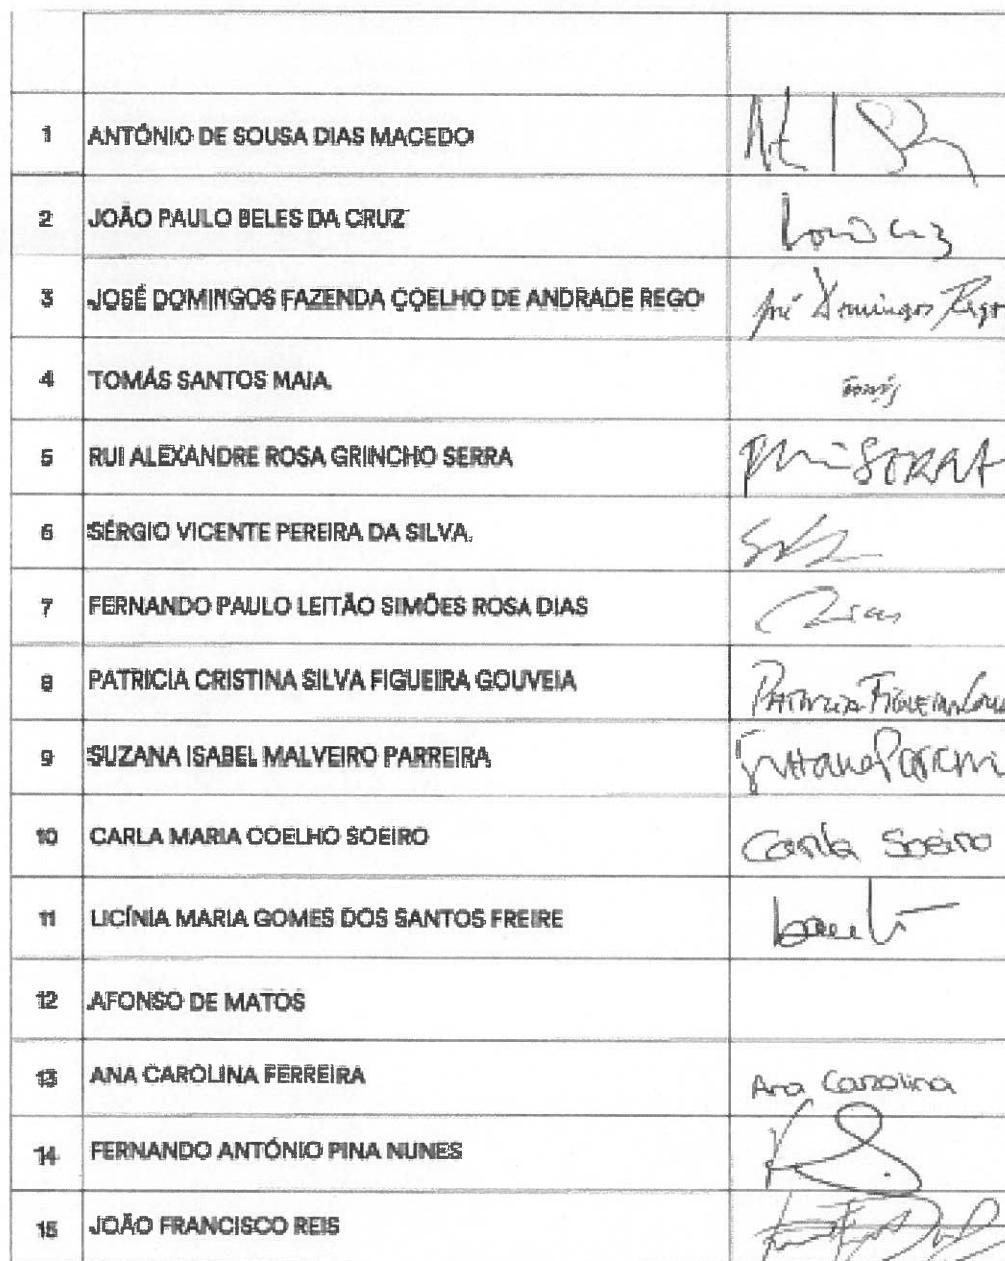 1 ANTÓNIO DE SOUSA DIAS MACEDO
2 JOÃO PAULO BELES DA CRUZ
3 JOSÉ DOMINGOS FAZENDA COELHO DE ANDRADE REGO José Domingos Rego
4 TOMÁS SANTOS MAIA Tomás
5 RUI ALEXANDRE ROSA GRINCHO SERRA Rui SERRA
6 SÉRGIO VICENTE PEREIRA DA SILVA
7 FERNANDO PAULO LEITÃO SIMÕES ROSA DIAS Dias
8 PATRICIA CRISTINA SILVA FIGUEIRA GOUVEIA
9 SUZANA ISABEL MALVEIRO PARREIRA
10 CARLA MARIA COELHO SOEIRO Carla Soeiro
11 LICÍNIA MARIA GOMES DOS SANTOS FREIRE
12 AFONSO DE MATOS
13 ANA CAROLINA FERREIRA Ana Carolina
14 FERNANDO ANTÓNIO PINA NUNES
15 JOÃO FRANCISCO REIS